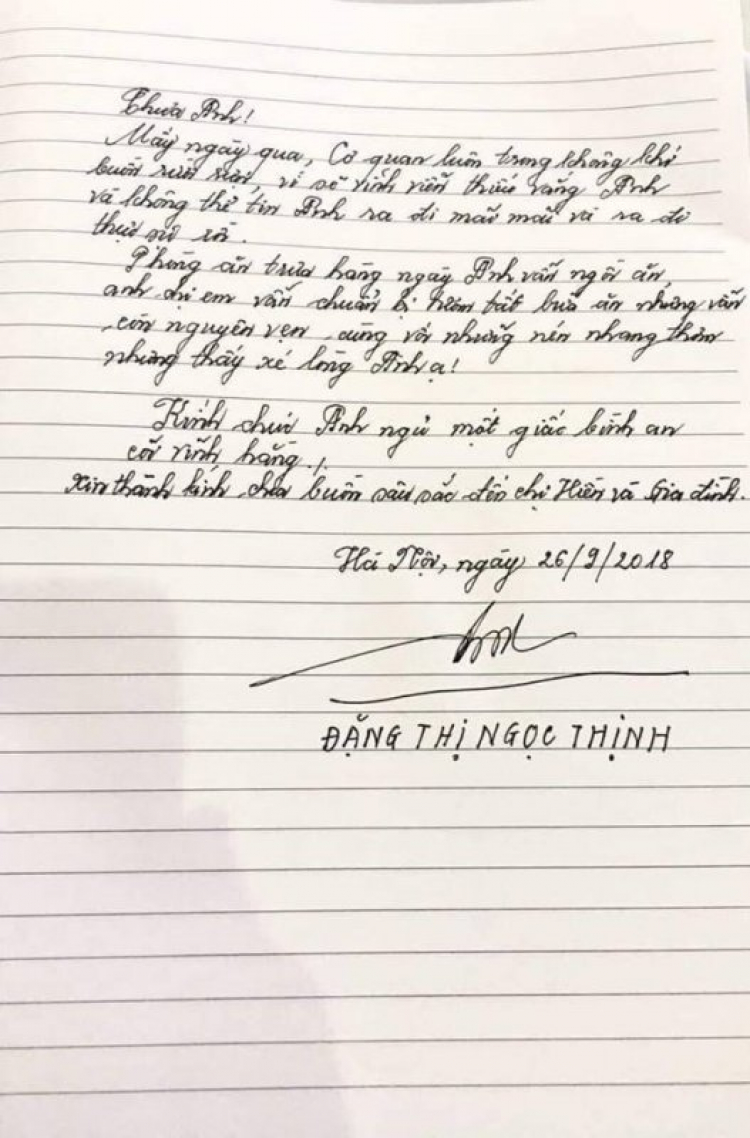 Thưa Anh!
Mấy ngày qua, Cơ quan luôn trong không khí
buồn rười rượi, vì sẽ vĩnh viễn thiếu vắng Anh
và không thể tin Anh ra đi mãi mãi và ra đi
thực sự rồi.
Phòng ăn trưa hàng ngày Anh vẫn ngồi ăn,
anh chị em vẫn chuẩn bị tươm tất bữa ăn nhưng vẫn
còn nguyên vẹn, cùng với những nén nhang thơm
nhưng thấy xé lòng Anh ạ!
Kính chúc Anh ngủ một giấc bình an
cõi vĩnh hằng./.
Xin thành kính chia buồn sâu sắc đến chị Hiền và Gia đình.
Hà Nội, ngày 26/9/2018
ĐẶNG THỊ NGỌC THỊNH